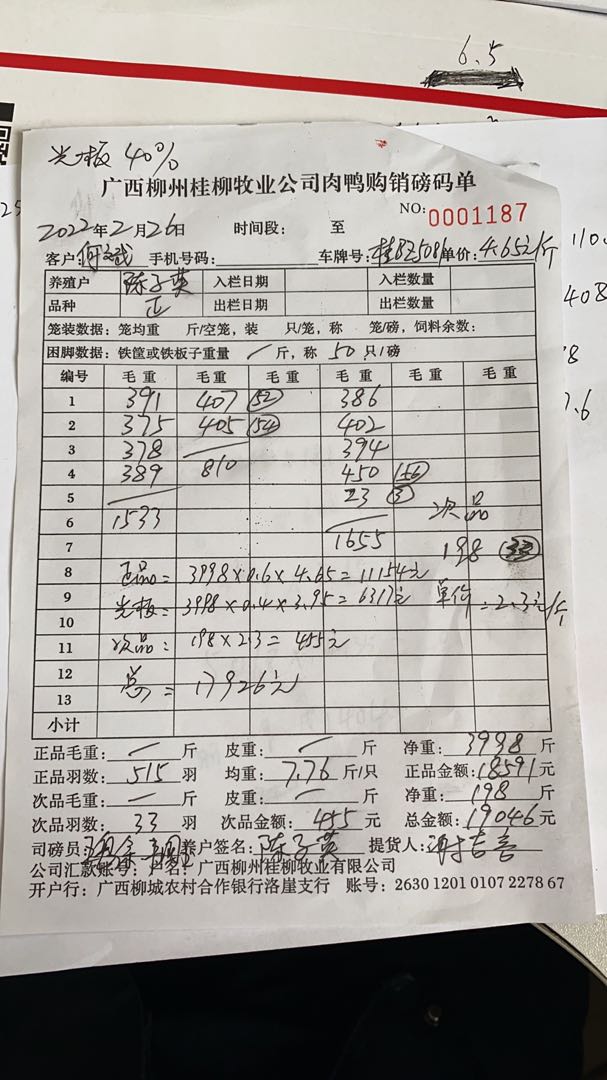 6.5
光板 40%
广西柳州桂柳牧业公司肉鸭购销磅码单
NO: 0001187
2022年2月26日 时间段: 至
客户: 何 手机号码: 车牌号: 桂BZ508 单价: 4.65元/斤
养殖户 陈子英 入栏日期 入栏数量
品种 正 出栏日期 出栏数量
笼装数据: 笼均重 斤/空笼, 装 只/笼, 称 笼/磅, 饲料余数:
困脚数据: 铁筐或铁板子重量 / 斤, 称 50 只/磅
编号 毛重 毛重 毛重 毛重 毛重 毛重
1 391 407 (52) 386
2 375 405 (54) 402
3 378 394
4 389 810 450 (56)
5 23 (3)
6 1533 次品
7 1655 198 (33)
8 正品= 3998×0.6×4.65=11154元
9 光板=3998×0.4×3.95=6317元 单价=2.3元/斤
10
11 次品: 198×2.3=455元
12 总=17926元
13
小计
正品毛重: / 斤 皮重: / 斤 净重: 3998 斤
正品羽数: 515 羽 均重: 7.76 斤/只 正品金额: 18591 元
次品毛重: / 斤 皮重: / 斤 净重: 198 斤
次品羽数: 33 羽 次品金额: 455 元 总金额: 19046 元
司磅员: 养户签名: 陈子英 提货人:
公司汇款账号: 户名: 广西柳州桂柳牧业有限公司
开户行: 广西柳城农村合作银行洛崖支行 账号: 2630 1201 0107 2278 67